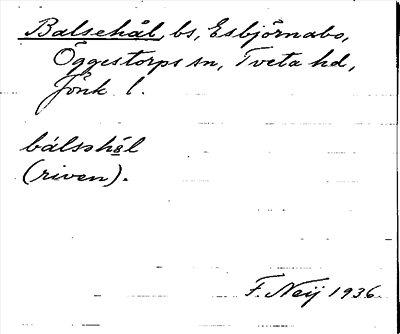 Balsehål, bs, Esbjörnabo,
Öggestorps sn, Tveta hd,
Jönk. l.
bálsəhol
(riven).
F. Neij 1936.